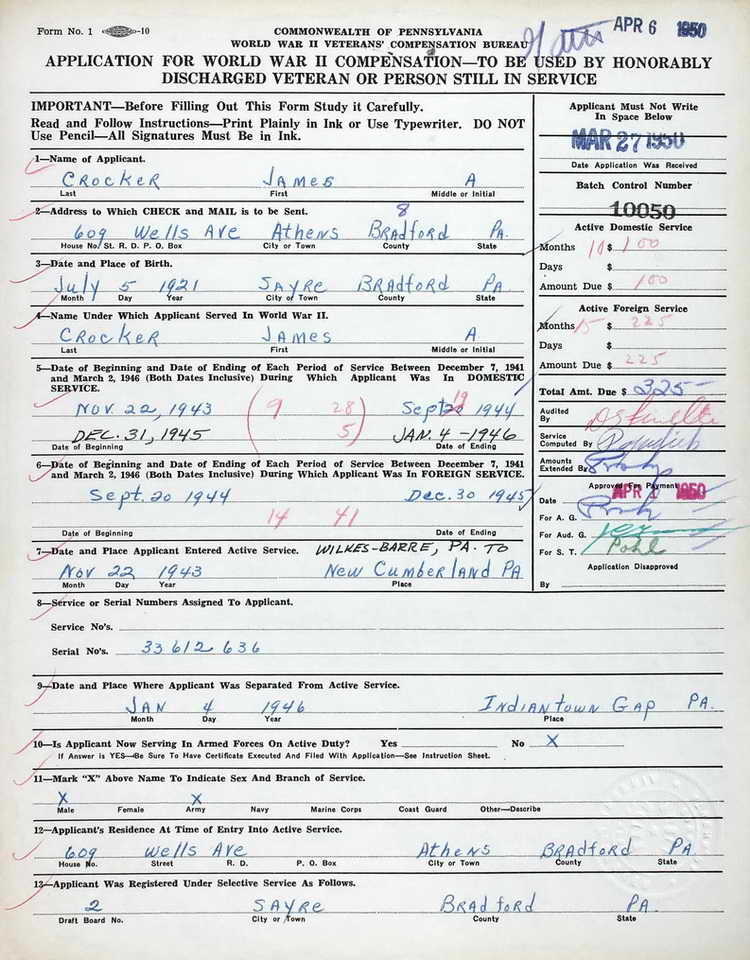 Form No. 1 -10
COMMONWEALTH OF PENNSYLVANIA
WORLD WAR II VETERANS' COMPENSATION BUREAU
APR 6 1950
APPLICATION FOR WORLD WAR II COMPENSATION—TO BE USED BY HONORABLY
DISCHARGED VETERAN OR PERSON STILL IN SERVICE
IMPORTANT—Before Filling Out This Form Study it Carefully.
Read and Follow Instructions—Print Plainly in Ink or Use Typewriter. DO NOT
Use Pencil—All Signatures Must Be in Ink.
Applicant Must Not Write
In Space Below
MAR 27 1950
Date Application Was Received
Batch Control Number
10050
Active Domestic Service
Months 10 $ 100
Days $
Amount Due $ 100
Active Foreign Service
Months 15 $ 225
Days $
Amount Due $ 225
Total Amt. Due $ 325
Audited
By
Service
Computed By
Amounts
Extended By
Approved For Payment
Date APR 1 1950
For A. G.
For Aud. G.
For S. T. Pohl
Application Disapproved
By
1—Name of Applicant.
CROCKER JAMES A
Last First Middle or Initial
2—Address to Which CHECK and MAIL is to be Sent. 8
609 Wells Ave Athens Bradford Pa.
House No. St. R. D. P. O. Box City or Town County State
3—Date and Place of Birth.
July 5 1921 SAYRE BRADford PA
Month Day Year City or Town County State
4—Name Under Which Applicant Served In World War II.
CROCKER JAMES A
Last First Middle or Initial
5—Date of Beginning and Date of Ending of Each Period of Service Between December 7, 1941
and March 2, 1946 (Both Dates Inclusive) During Which Applicant Was In DOMESTIC
SERVICE.
Nov. 22, 1943 9 28 Sept 20 19 1944
DEC. 31, 1945 5 JAN. 4 - 1946
Date of Beginning Date of Ending
6—Date of Beginning and Date of Ending of Each Period of Service Between December 7, 1941
and March 2, 1946 (Both Dates Inclusive) During Which Applicant Was In FOREIGN SERVICE.
Sept. 20 1944 Dec. 30 1945
14 41
Date of Beginning Date of Ending
7—Date and Place Applicant Entered Active Service. WILKES-BARRE, PA. TO
Nov 22 1943 New Cumberland PA
Month Day Year Place
8—Service or Serial Numbers Assigned To Applicant.
Service No's.
Serial No's. 33 612 636
9—Date and Place Where Applicant Was Separated From Active Service.
JAN 4 1946 INDIANTOWN GAP PA.
Month Day Year Place
10—Is Applicant Now Serving In Armed Forces On Active Duty? Yes No X
If Answer is YES—Be Sure To Have Certificate Executed And Filed With Application—See Instruction Sheet.
11—Mark "X" Above Name To Indicate Sex and Branch of Service.
X X
Male Female Army Navy Marine Corps Coast Guard Other—Describe
12—Applicant's Residence At Time of Entry Into Active Service.
609 Wells Ave Athens BRADford PA
House No. Street R. D. P. O. Box City or Town County State
13—Applicant Was Registered Under Selective Service As Follows.
2 SAYRE BRADford PA.
Draft Board No. City or Town County State